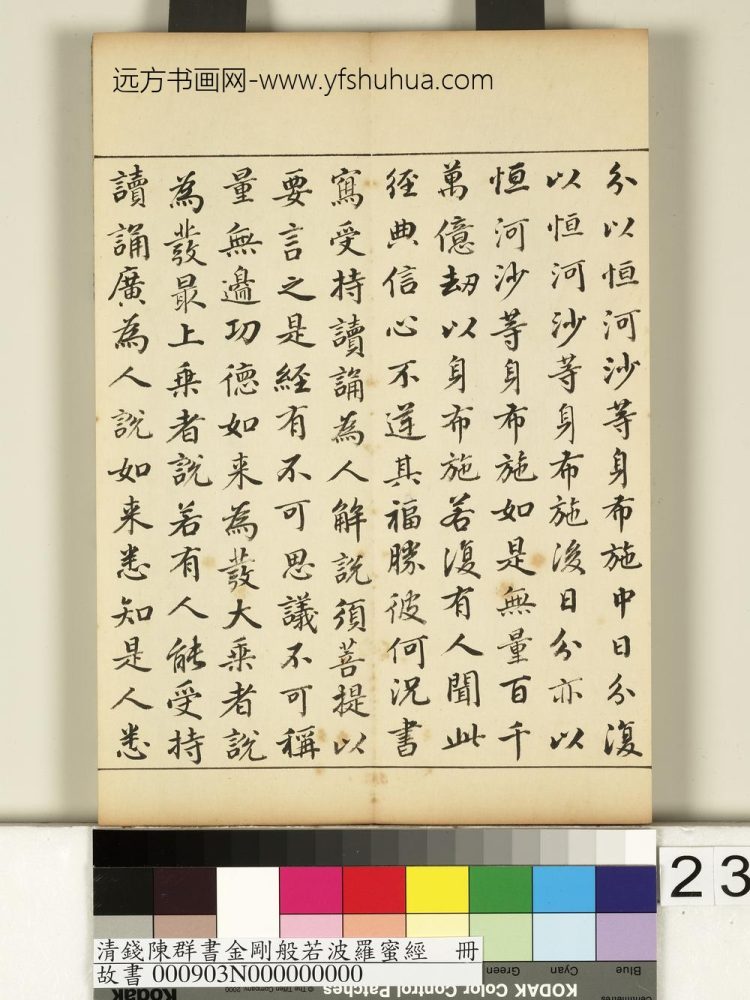 远方书画网-www.yfshuhua.com
分以恒河沙等身布施中日分復
以恒河沙等身布施後日分亦以
恒河沙等身布施如是無量百千
萬億劫以身布施若復有人聞此
經典信心不逆其福勝彼何況書
寫受持讀誦為人解説須菩提以
要言之是經有不可思議不可稱
量無邊功德如来為發大乘者説
為發最上乘者説若有人能受持
讀誦廣為人説如来悉知是人悉
23
清錢陳群書金剛般若波羅蜜經 冊
故書 000903N000000000
Green Cyan Blue
KODAK Color Control Patches
Kodak
© The Tiffen Company, 2000